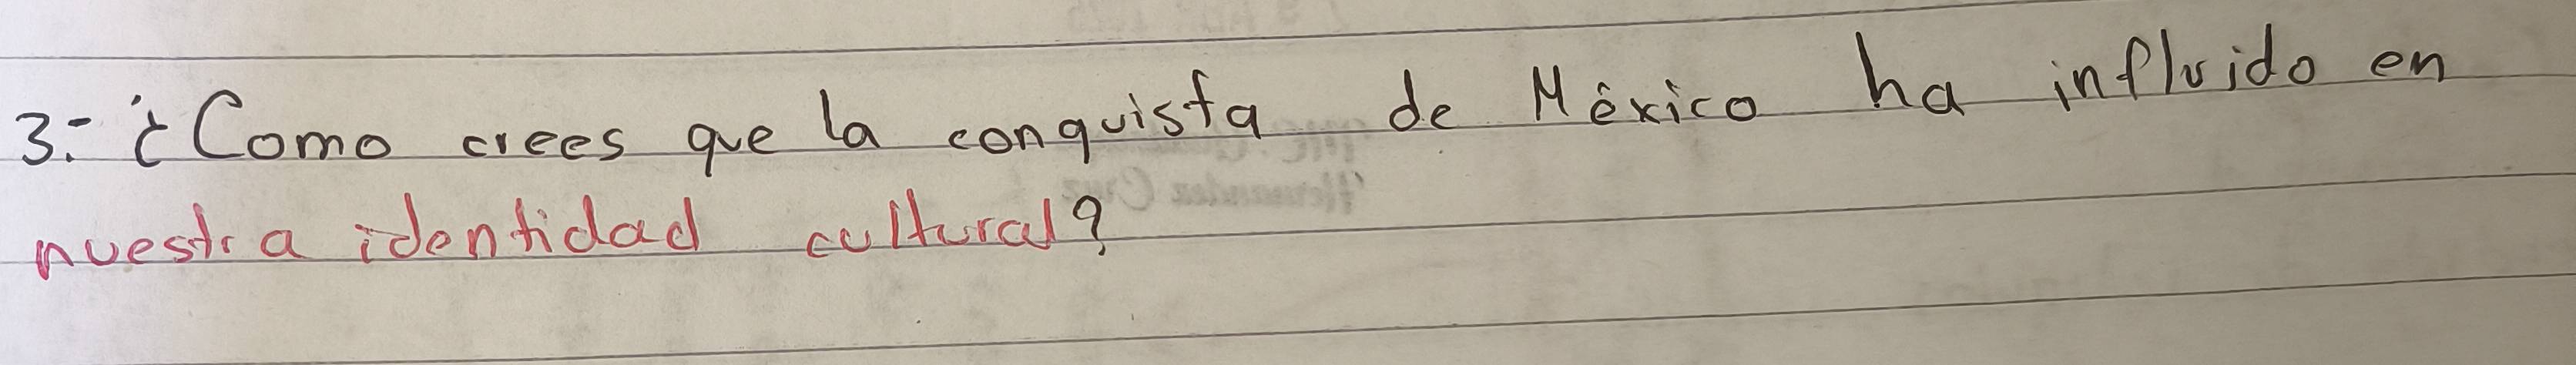 3.- ¿Como crees que la conquista de México ha influido en
nuestra identidad cultural?